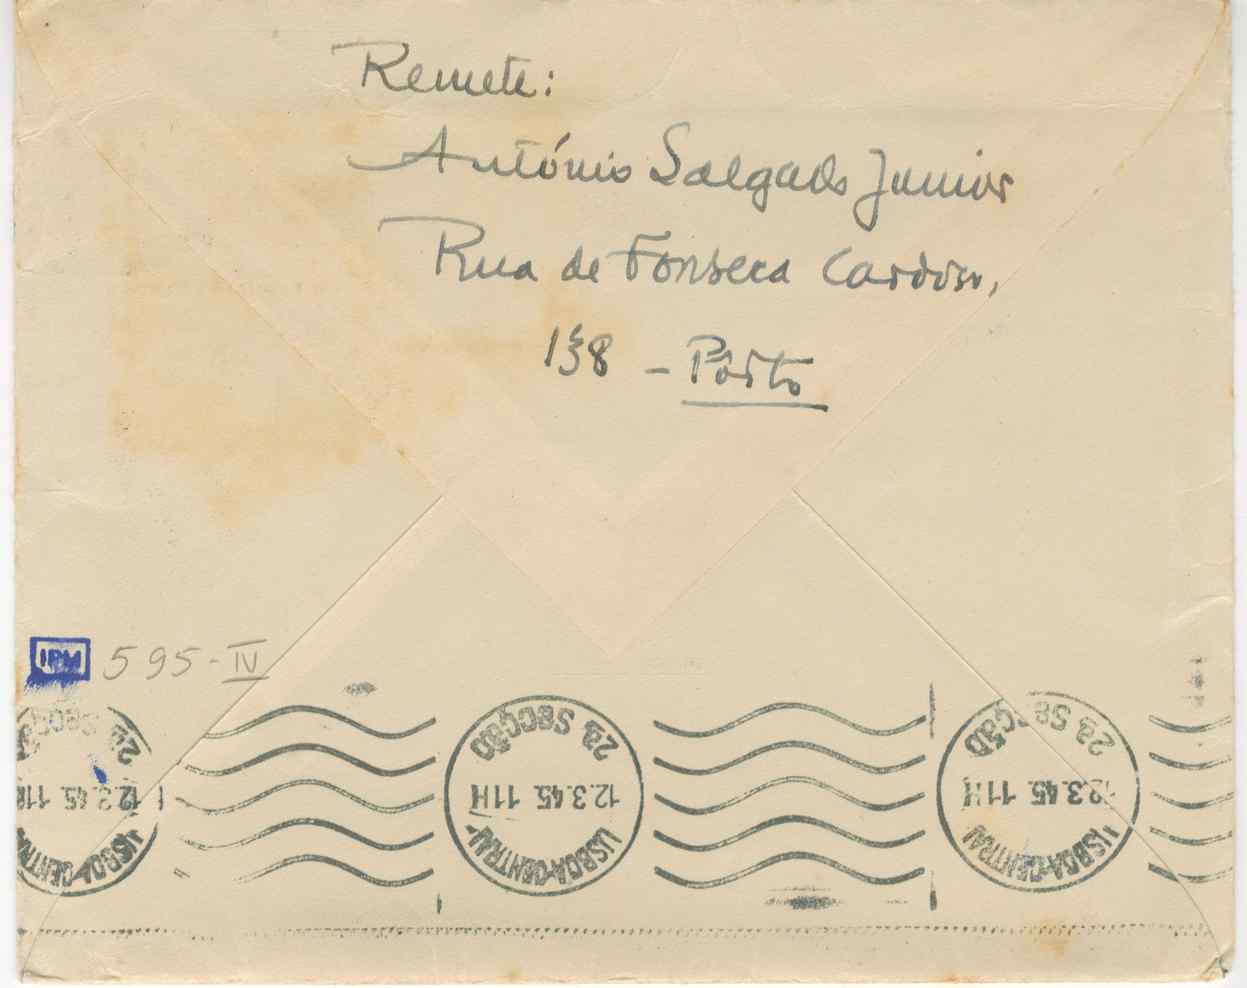 Remete:
António Salgado Junior
Rua de Fonseca Cardoso,
138 - Pôrto
IPM 595-IV
2ª. SECÇÃO
12.3.45. 11H
LISBOA-CENTRAL
2ª. SECÇÃO
12.3.45. 11H
LISBOA-CENTRAL
2ª. SECÇÃO
12.3.45. 11H
LISBOA-CENTRAL